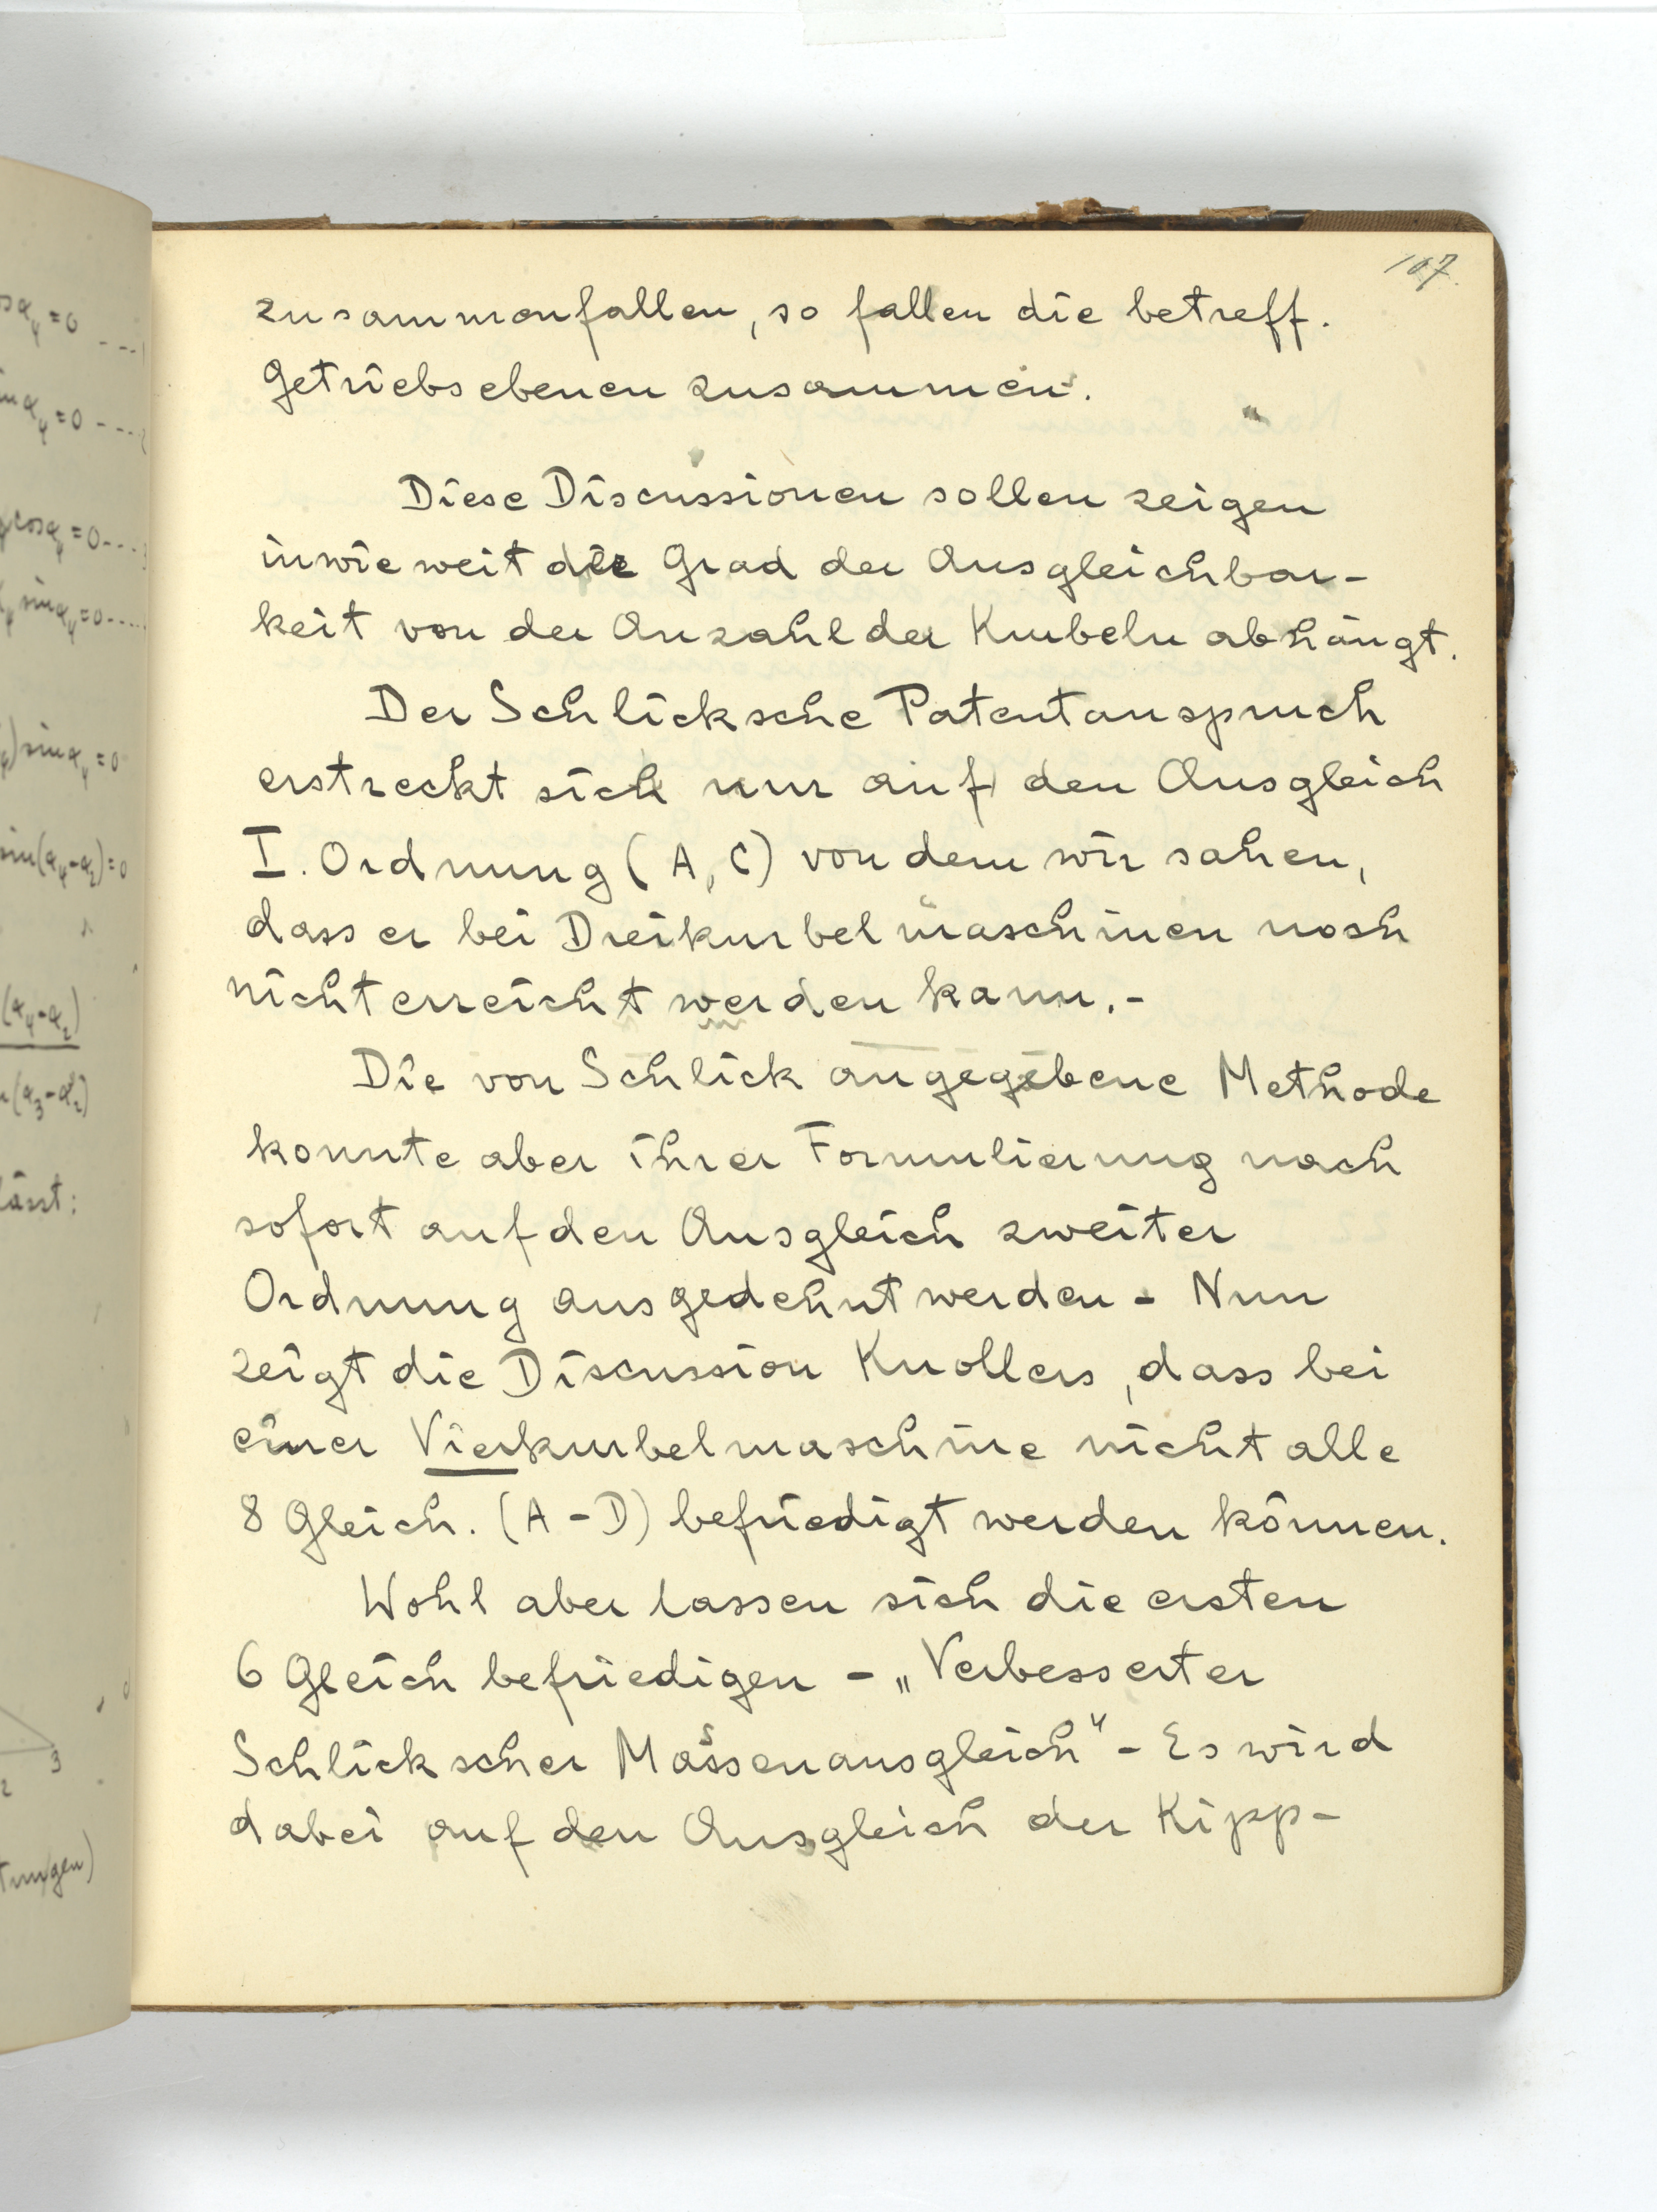 107
zusammenfallen, so fallen die betreff.
Getriebsebenen zusammen.
Diese Discussionen sollen zeigen
inwieweit der Grad der Ausgleichbar-
keit von der Anzahl der Kurbeln abhängt.
Der Schlicksche Patentanspruch
erstreckt sich nur auf den Ausgleich
I. Ordnung (A, C) von dem wir sahen,
dass er bei Dreikurbelmaschinen noch
nicht erreicht werden kann.-
Die von Schlick angegebene Methode
konnte aber ihrer Formulierung nach
sofort auf den Ausgleich zweiter
Ordnung ausgedehnt werden - Nun
zeigt die Discussion Knollers, dass bei
einer Vierkurbelmaschine nicht alle
8 Gleich. (A - D) befriedigt werden können.
Wohl aber lassen sich die ersten
6 Gleich befriedigen - „Verbesserter
Schlickscher Massenausgleich" - Es wird
dabei auf den Ausgleich der Kipp-
cosα₄ = 0
sinα₄ = 0 - - - -
cosα₄ = 0 - - -
sinα₄ = 0 - - - -
) sinα₄ = 0
sin(α₄-α₂) = 0
(α₄-α₂)
(α₃-α₂)
lässt:
3
2